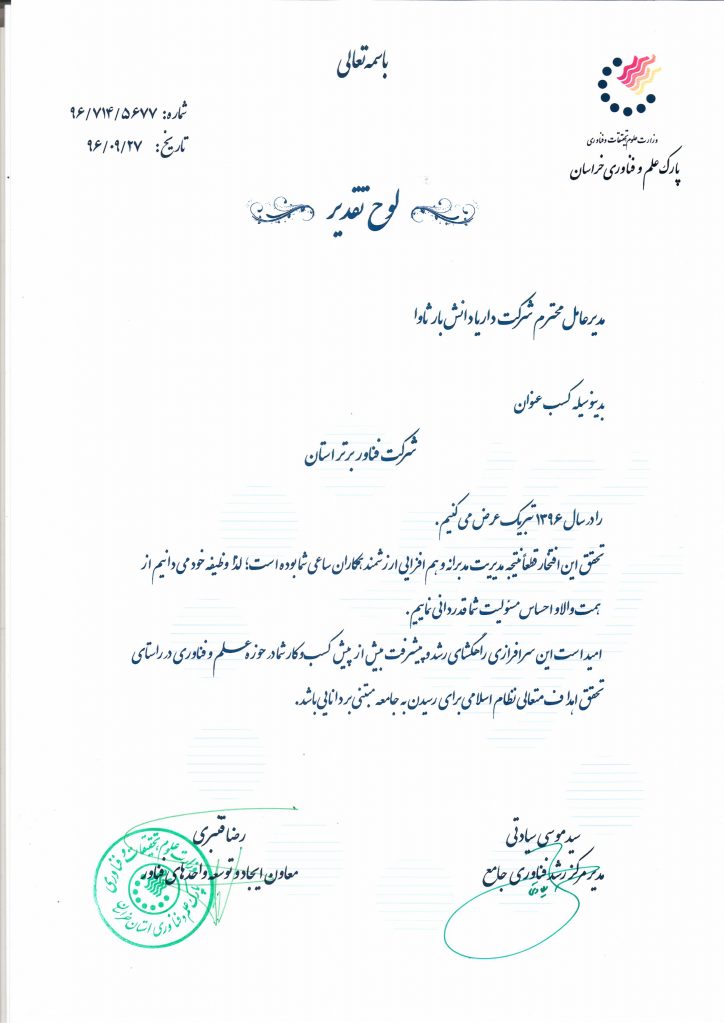 باسمه تعالی
وزارت علوم تحقیقات و فناوری
پارک علم و فناوری خراسان
شماره: ۹۶/۷۱۴/۵۶۷۷
تاریخ: ۹۶/۰۹/۲۷
لوح تقدیر
مدیرعامل محترم شرکت داریا دانش بار ثاوا
بدینوسیله کسب عنوان
شرکت فناور برتر استان
را در سال ۱۳۹۶ تبریک عرض می کنیم.
تحقق این افتخار قطعاً نتیجه مدیریت مدبرانه و هم افزایی ارزشمند همکاران ساعی شما بوده است؛ لذا وظیفه خود می دانیم از
همت والا و احساس مسئولیت شما قدردانی نماییم.
امید است این سرافرازی راهگشای رشد و پیشرفت بیش از پیش کسب و کار شما در حوزه علم و فناوری در راستای
تحقق اهداف متعالی نظام اسلامی برای رسیدن به جامعه مبتنی بر دانایی باشد.
سید موسی سیادتی
مدیر مرکز رشد فناوری جامع
رضا قنبری
معاون ایجاد و توسعه واحدهای فناور
وزارت علوم، تحقیقات و فناوری
پارک علم و فناوری استان خراسان